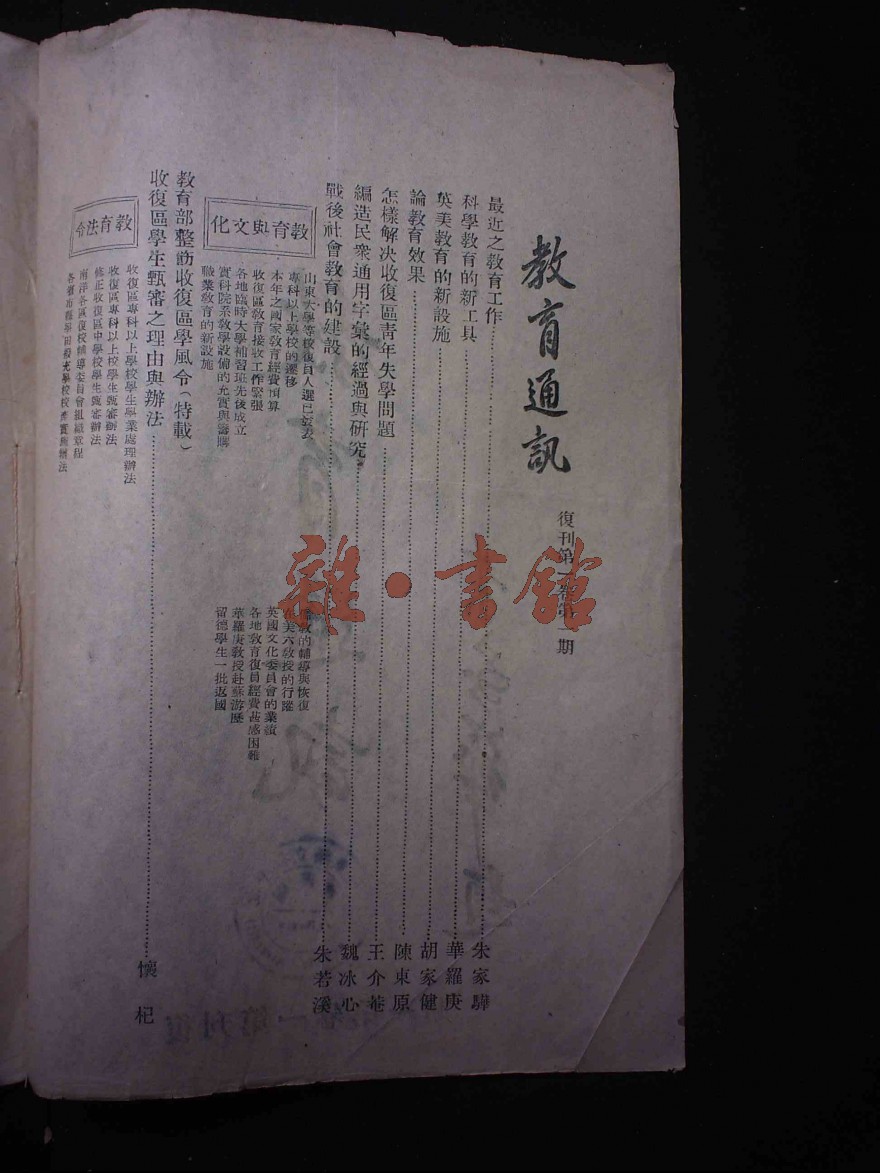 教育通訊
復刊第 卷第 期
最近之教育工作 朱家驊
科學教育的新工具 華羅庚
英美教育的新設施 胡家健
論教育效果 陳東原
怎樣解決收復區青年失學問題 王介菴
編造民衆通用字彙的經過與研究 魏冰心
戰後社會教育的建設 朱若溪
教育與文化
山東大學等校復員人選已發表
專科以上學校的遷移
本年之國家教育經費預算
收復區教育接收工作緊張
各地臨時大學補習班先後成立
實科院系教學設備的充實與籌購
職業教育的新設施
教的輔導與恢復
在美六教授的行蹤
英國文化委員會的業績
各地教育復員經費甚感困難
華羅庚教授赴蘇游歷
留德學生一批返國
教育部整飭收復區學風令(特載)
收復區學生甄審之理由與辦法 懷杞
教育法令
收復區專科以上學校學生學業處理辦法
收復區專科以上校學生甄審辦法
修正收復區中學校學生甄審辦法
南洋各區復校輔導委員會組織章程
各省市縣 田撥充學校校產實施辦法
雜·書館